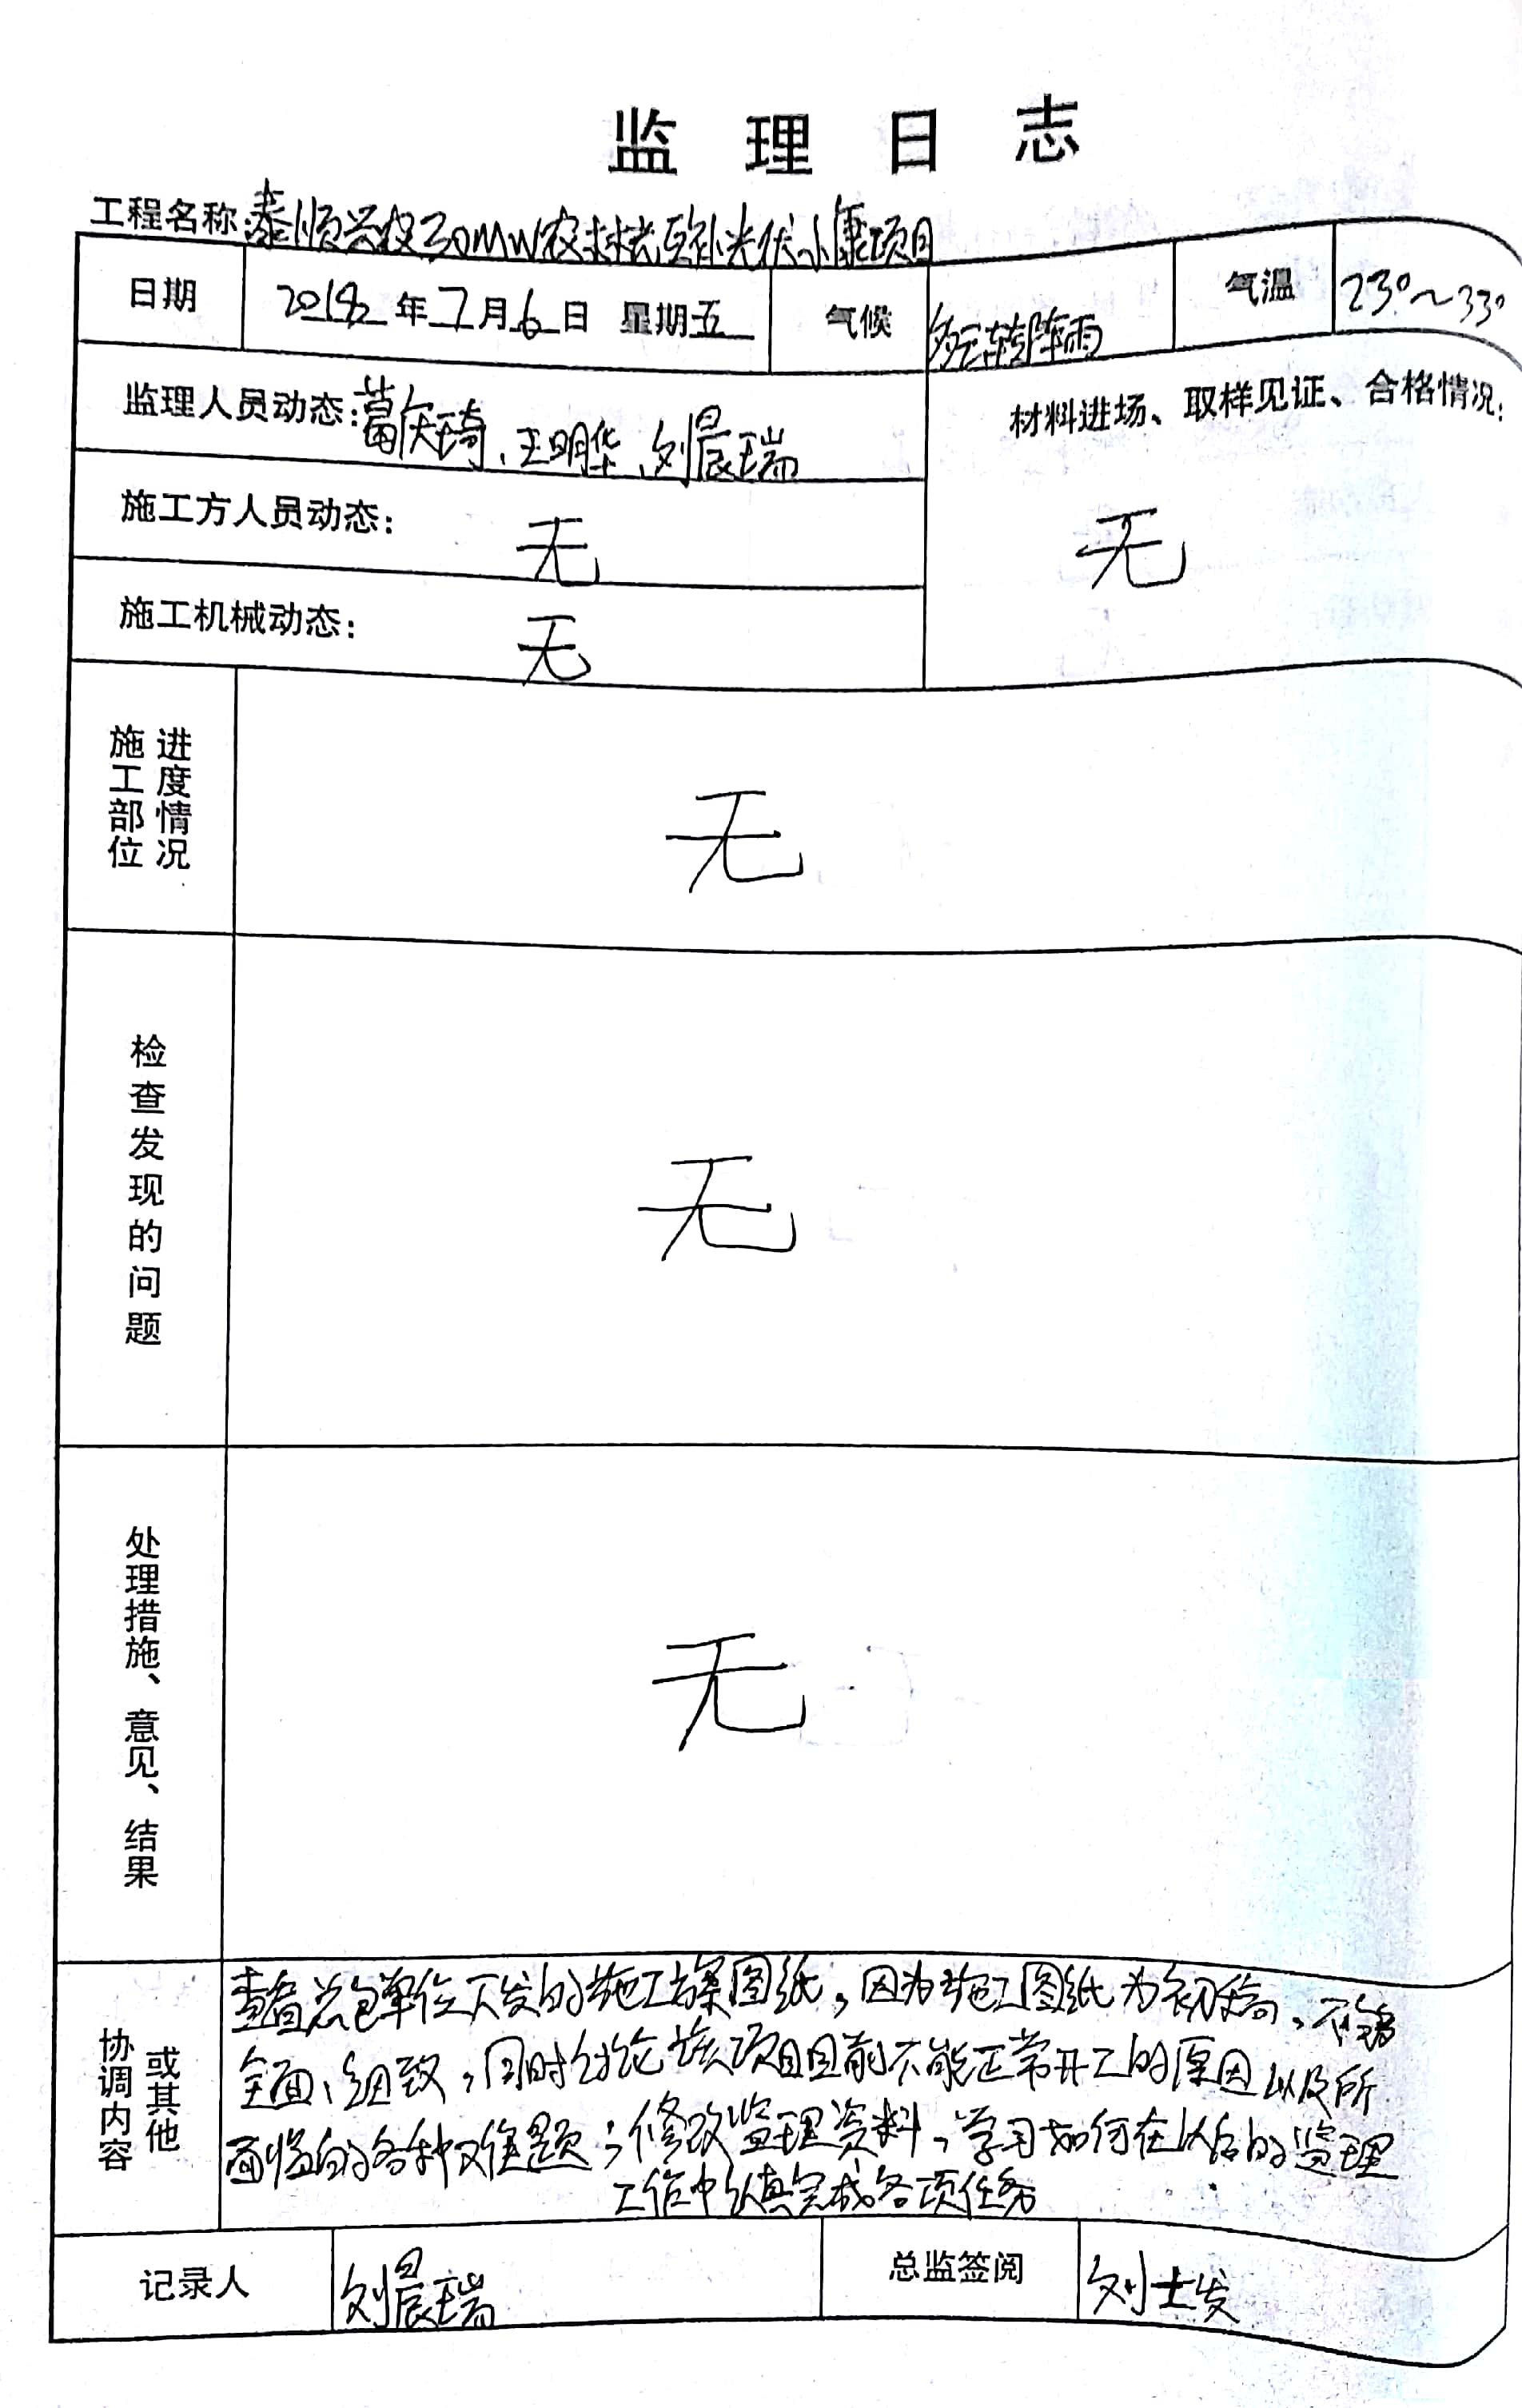 监理日志
工程名称:泰顺兴投30MW农林光互补光伏小康项目
日期 2018年7月6日 星期五 气候 多云转阵雨 气温 23°~33°
监理人员动态:葛庆琦、王明华、刘晨瑞
材料进场、取样见证、合格情况:
施工方人员动态: 无
无
施工机械动态: 无
施工部位 进度情况 无
检查发现的问题 无
处理措施、意见、结果 无
协调内容 或其他
查看总包单位下发的施工方案图纸,因为施工图纸为初稿,不够
全面、细致,同时讨论该项目目前不能正常开工的原因以及所
面临的各种难题;修改监理资料,学习如何在以后的监理
工作中认真完成各项任务
记录人 刘晨瑞 总监签阅 刘士发